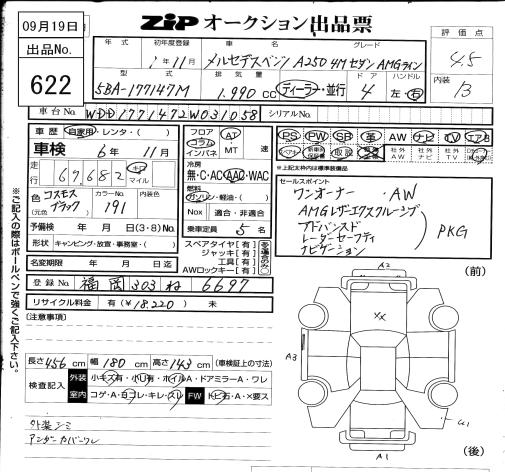 09月19日
ZIP オークション出品票
出品No.
622
年式 初年度登録 車名 グレード 評価点
1年11月 メルセデスベンツ A250 4M セダン AMGライン 4.5
型式 排気量 ドア ハンドル 内装
5BA-177147M 1,990 cc ディーラー・並行 4 左・右 B
車台No. WDD1771472W031058 シリアルNo.
車歴 自家用・レンタ・( )
車検 6年 11月
走行 67,682 キロ マイル
色 (元色) コスモスブラック カラーNo. 191 内装色
予備検 年 月 日(3・8)No.
形状 キャンピング・放宣・事務室・( )
名変期限 年 月 日迄
フロア コラム インパネ AT MT 速
冷房
無・C・AC・AAC・WAC
燃料
ガソリン・軽油・( )
Nox 適合・非適合
乗車定員 5 名
スペアタイヤ[有]
ジャッキ[有]
工具[有]
AWロックキー[有]
PS PW SR 革 AW ナビ TV エアB
社外AW 社外ナビ 社外TV
※上段太枠内は標準装備品
セールスポイント
ワンオーナー ・AW
AMGレザーエクスクルーシブ
アドバンスド
レーダーセーフティ
ナビゲーション
PKG
登録No. 福岡 303 ね 6697
リサイクル料金 有(¥18,220) 未
[注意事項]
長さ 456 cm 幅 180 cm 高さ 143 cm (車検証上の寸法)
検査記入 外装 小キズ有・小凹有・ホイルA・ドアミラーA・ワレ
室内 コゲ・A・ヨゴレ・キレ・スレ FW トビ石・A・×要ス
外装シミ
アンダーカバーワレ
※ご記入の際はボールペンで強くご記入下さい。
(前)
A2
XX
A3
A1
(後)